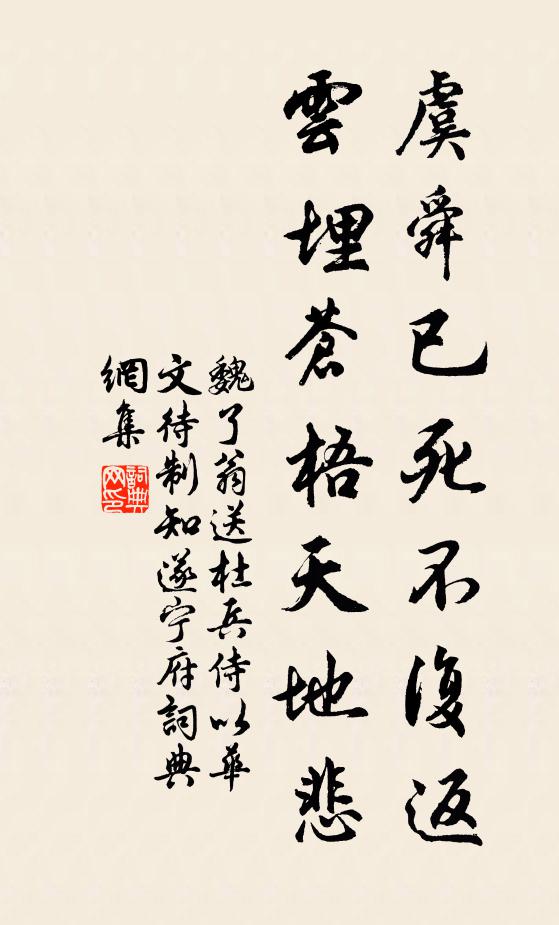 虞舜已死不復返
雲埋蒼梧天地悲
魏了翁送杜兵侍以華
文待制知遂宁府詞典
網集
詞典
网印